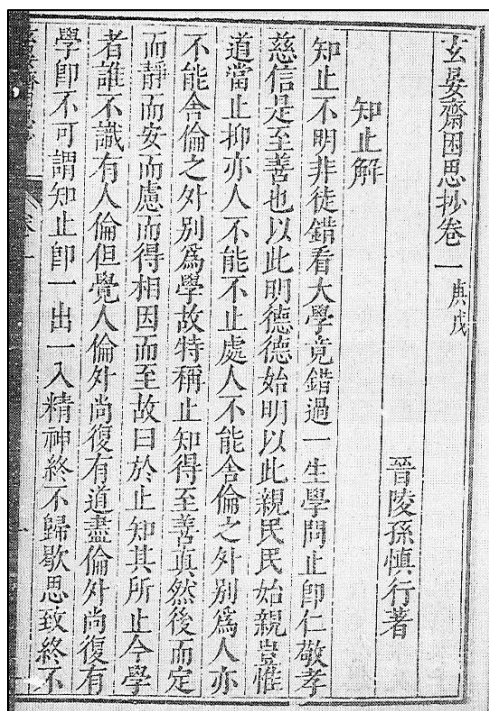 玄晏齋困思抄卷一 庚戌
晉陵孫慎行著
知止解
知止不明非徒錯看大學竟錯過一生學問止即仁敬孝
慈信是至善也以此明德德始明以此親民民始親豈惟
道當止抑亦人不能不止處人不能舍倫之外別爲人亦
不能舍倫之外別爲學故特稱止知得至善眞然後而定
而靜而安而慮而得相因而至故曰於止知其所止今學
者誰不識有人倫但覺人倫外尚復有道盡倫外尚復有
學卽不可謂知止卽一出一入精神終不歸歇思致終不